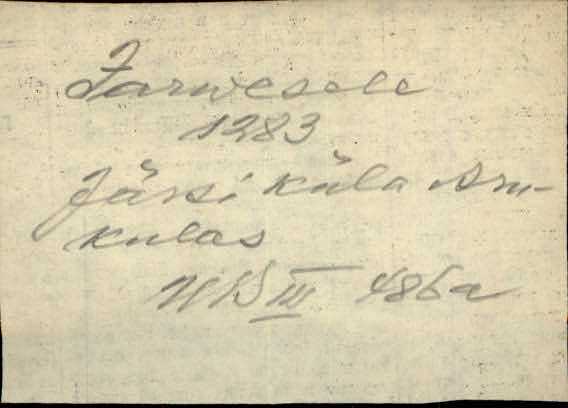 Jarwesele
1283
Järsi küla Aru-
kulas
UB III 486a